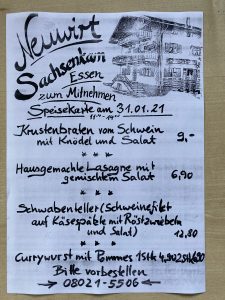 Neuwirt
Sachsenkam
Essen
zum Mitnehmen
Speisekarte am 31.01.21
11⁰⁰-14⁰⁰
Krustenbraten vom Schwein
mit Knödel und Salat 9,-
* * *
Hausgemachte Lasagne mit
gemischtem Salat 6,90
* * *
Schwabenteller (Schweinefilet
auf Käsespätzle mit Röstzwiebeln
und Salat) 12,80
* * *
Currywurst mit Pommes 1Stk 4,90 2Stk 6,90
Bitte vorbestellen
→ 08021-5506 ←